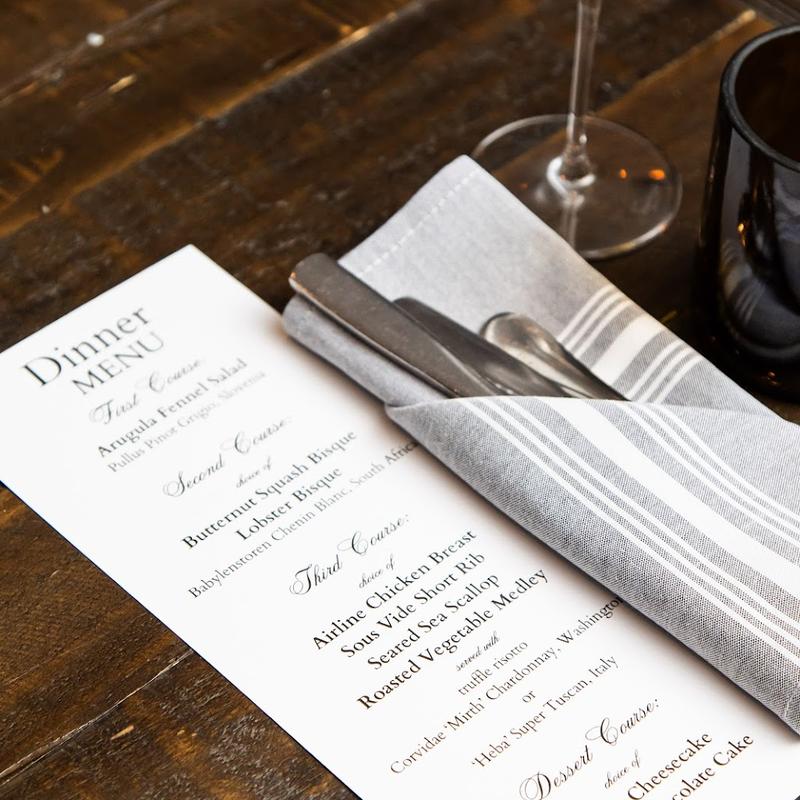 Dinner
MENU
First Course:
Arugula Fennel Salad
Pullus Pinot Grigio, Slovenia
Second Course:
choice of
Butternut Squash Bisque
Lobster Bisque
Babylenstoren Chenin Blanc, South Africa
Third Course:
choice of
Airline Chicken Breast
Sous Vide Short Rib
Seared Sea Scallop
Roasted Vegetable Medley
served with
truffle risotto
Corvidae 'Mirth' Chardonnay, Washington
or
'Heba' Super Tuscan, Italy
Dessert Course:
choice of
Cheesecake
colate Cake